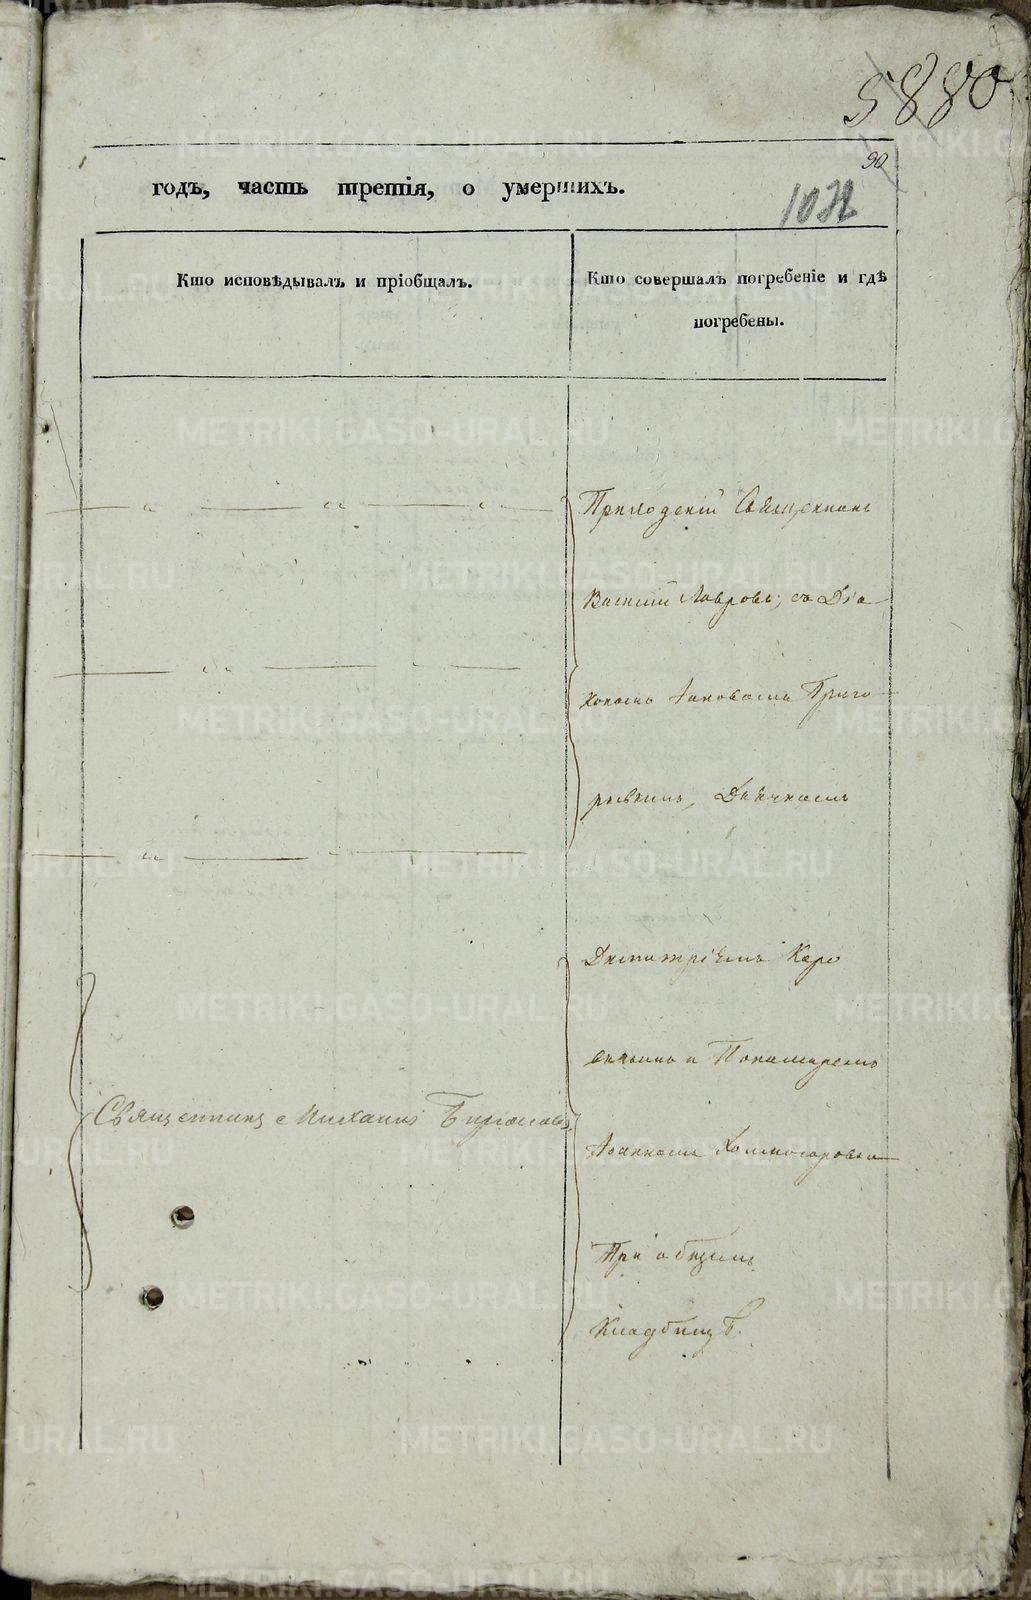 5880
90
годъ, часть третія, о умершихъ.
103
Кто исповѣдывалъ и пріобщалъ.
Кто совершалъ погребеніе и гдѣ
погребены.
Приходскій Священникъ
Василій Лавровъ, съ Діа
кономъ Григо
рьевымъ, Дьячкомъ
Димитріемъ Каро
и Пономаремъ
Священникъ Михаилъ
Іоанномъ Холмогоровы
При общемъ
Кладбищѣ.
METRIKI.GASO-URAL.RU